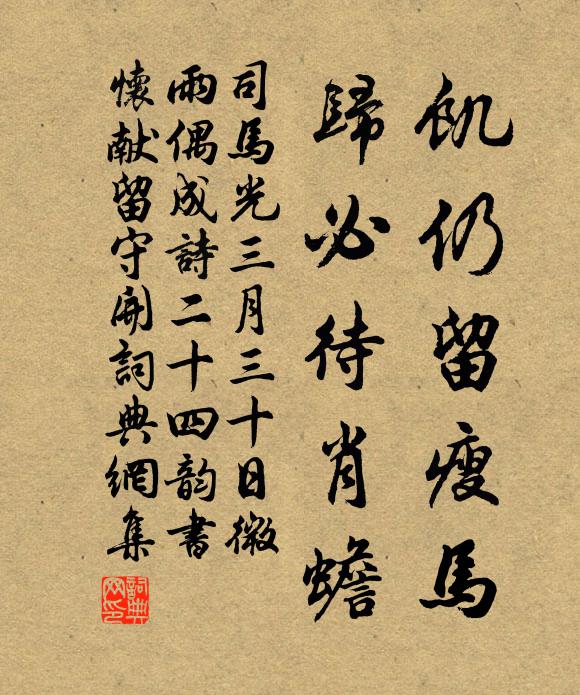 飢仍留瘦馬
歸必待肖蟾
司馬光三月三十日微
雨偶成詩二十四韵書
懷献留守開詞典網集
詞典网印